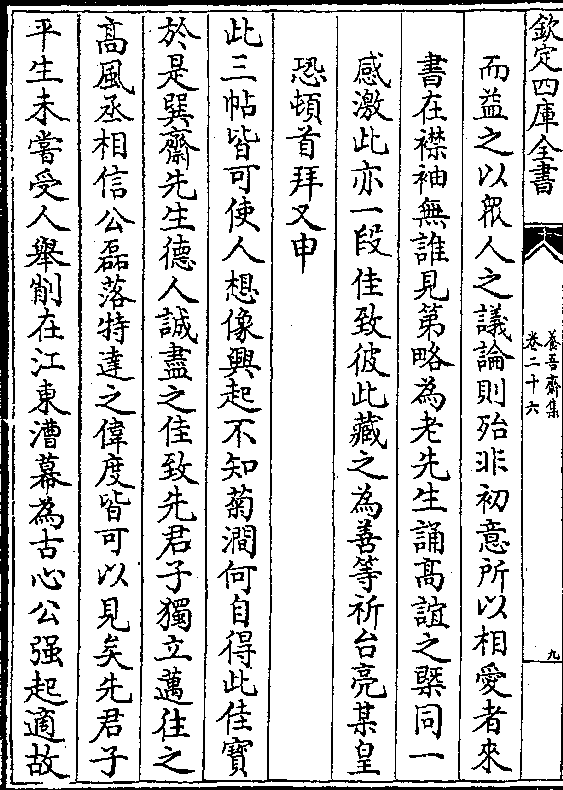 欽定四庫全書
養吾齋集
卷二十六
九
而益之以衆人之議論則殆非初意所以相愛者來
書在襟袖無誰見第略為老先生誦髙誼之槩同一
感激此亦一段佳致彼此藏之為善等祈台亮某皇
恐頓首拜又申
此三帖皆可使人想像興起不知菊澗何自得此佳寶
於是巽齋先生德人誠盡之佳致先君子獨立邁往之
髙風丞相信公磊落特達之偉度皆可以見矣先君子
平生未嘗受人舉削在江東漕幕為古心公强起適故